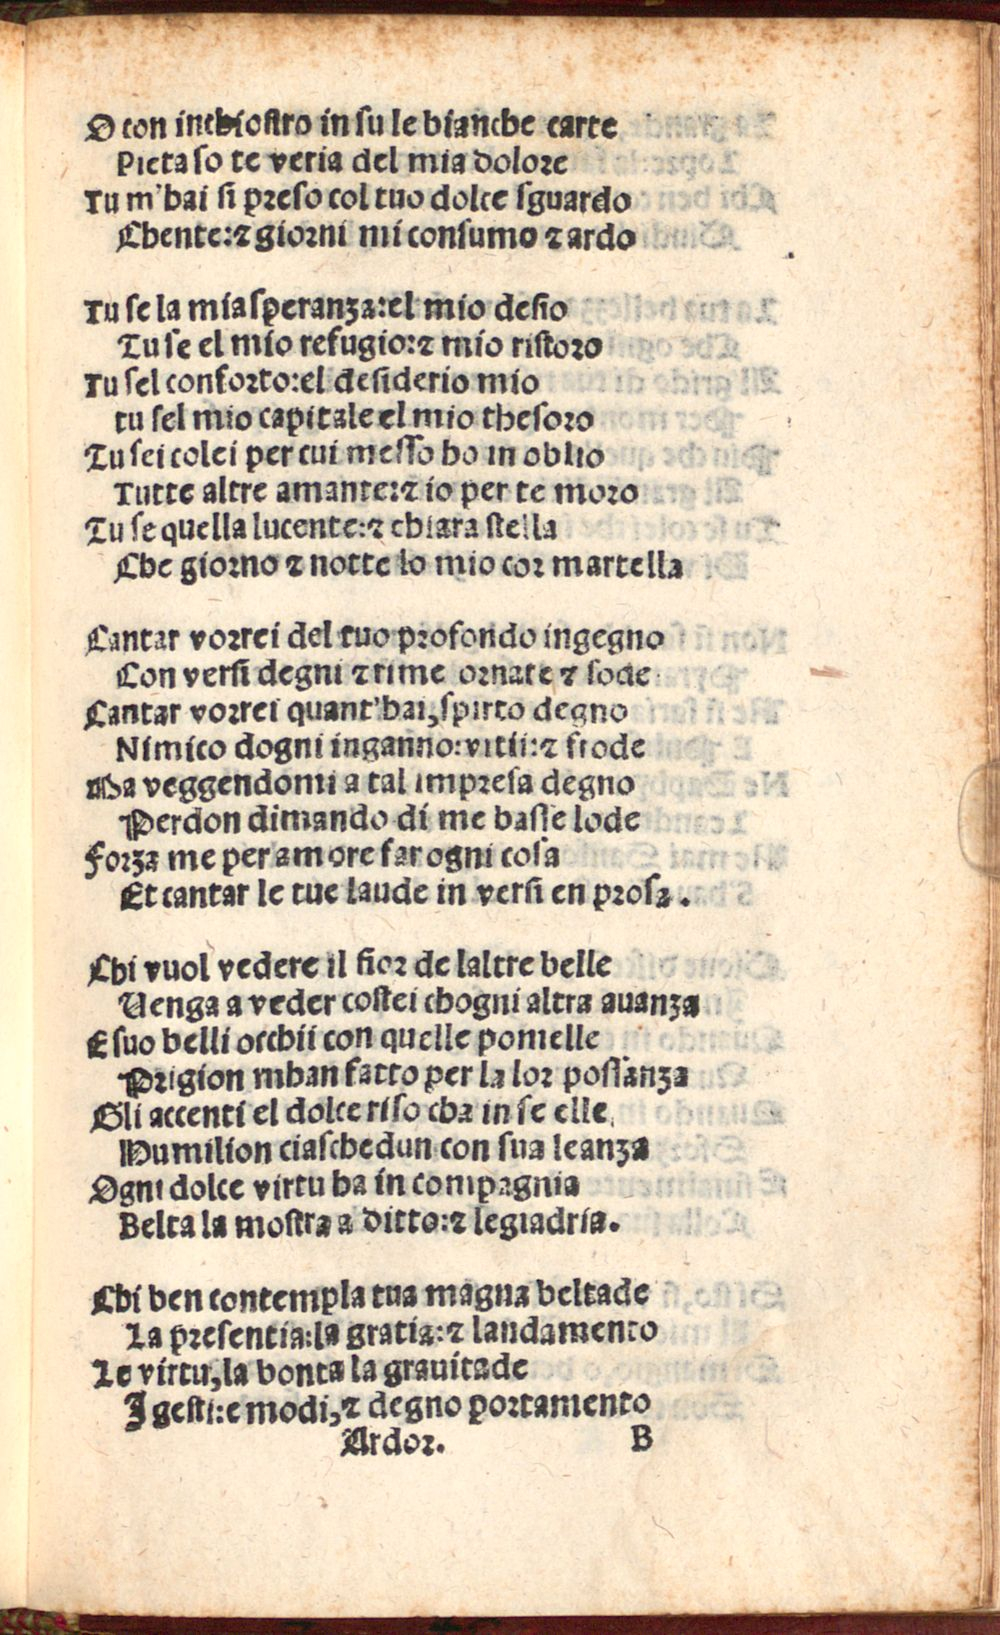 O con inchiostro in su le bianche carte
Pieta so te veria del mia dolore
Tu m'hai si preso col tuo dolce sguardo
Chente: & giorni mi consumo & ardo
Tu se la mia speranza: el mio desio
Tu se el mio refugio: & mio ristoro
Tu sel conforto: el desiderio mio
tu sel mio capitale el mio thesoro
Tu sei colei per cui messo ho in oblio
Tutte altre amante: & io per te moro
Tu se quella lucente: & chiara stella
Che giorno & notte lo mio cor martella
Cantar vorrei del tuo profondo ingegno
Con versi degni & rime ornate & sode
Cantar vorrei quant'hai, spirto degno
Nimico dogni inganno: vitii: & frode
Ma veggendomi a tal impresa degno
Perdon dimando di me basse lode
Forza me per amore far ogni cosa
Et cantar le tue laude in versi en prosa.
Chi vuol vedere il fior de laltre belle
Uenga a veder costei chogni altra auanza
E suo belli occhii con quelle pomelle
Prigion mhan fatto per la lor possanza
Gli accenti el dolce riso cha in se elle,
Humilion ciaschedun con sua leanza
Ogni dolce virtu ha in compagnia
Belta la mostra a ditto: & legiadria.
Chi ben contempla tua magna beltade
La presentia: la gratia: & landamento
Le virtu, la bonta la grauitade
I gesti: e modi, & degno portamento
Ardor. B